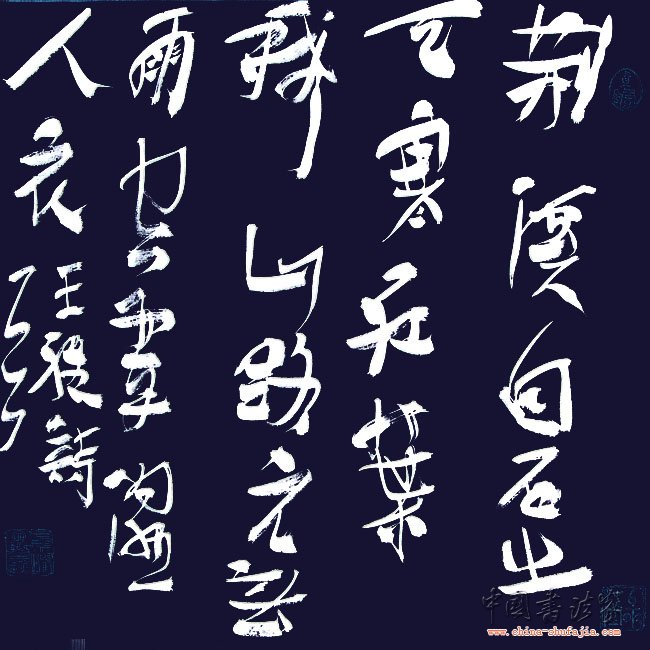 荆溪白石出
天寒紅葉
稀山路元無
雨空翠濕
人衣
王維詩
中國書法家
www.china-shufajia.com